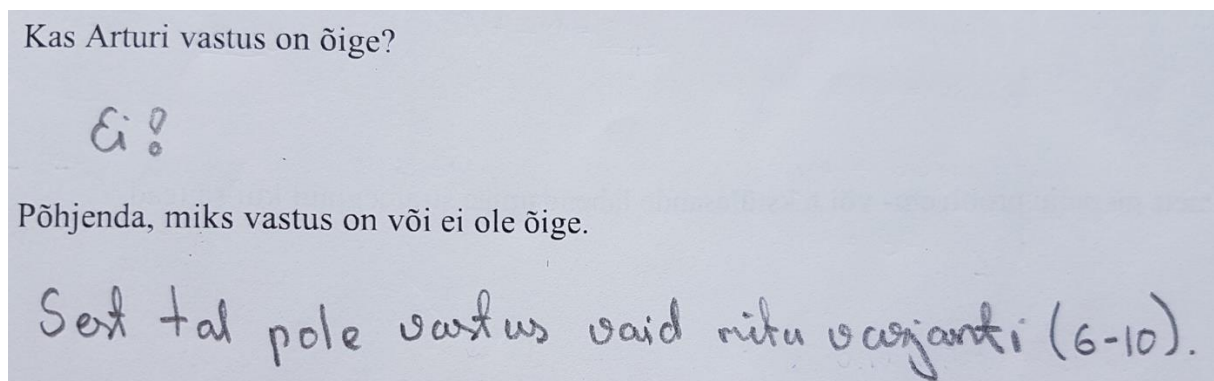 Kas Arturi vastus on õige?
Ei!
Põhjenda, miks vastus on või ei ole õige.
Sest tal pole vastus vaid mitu varjanti (6-10).